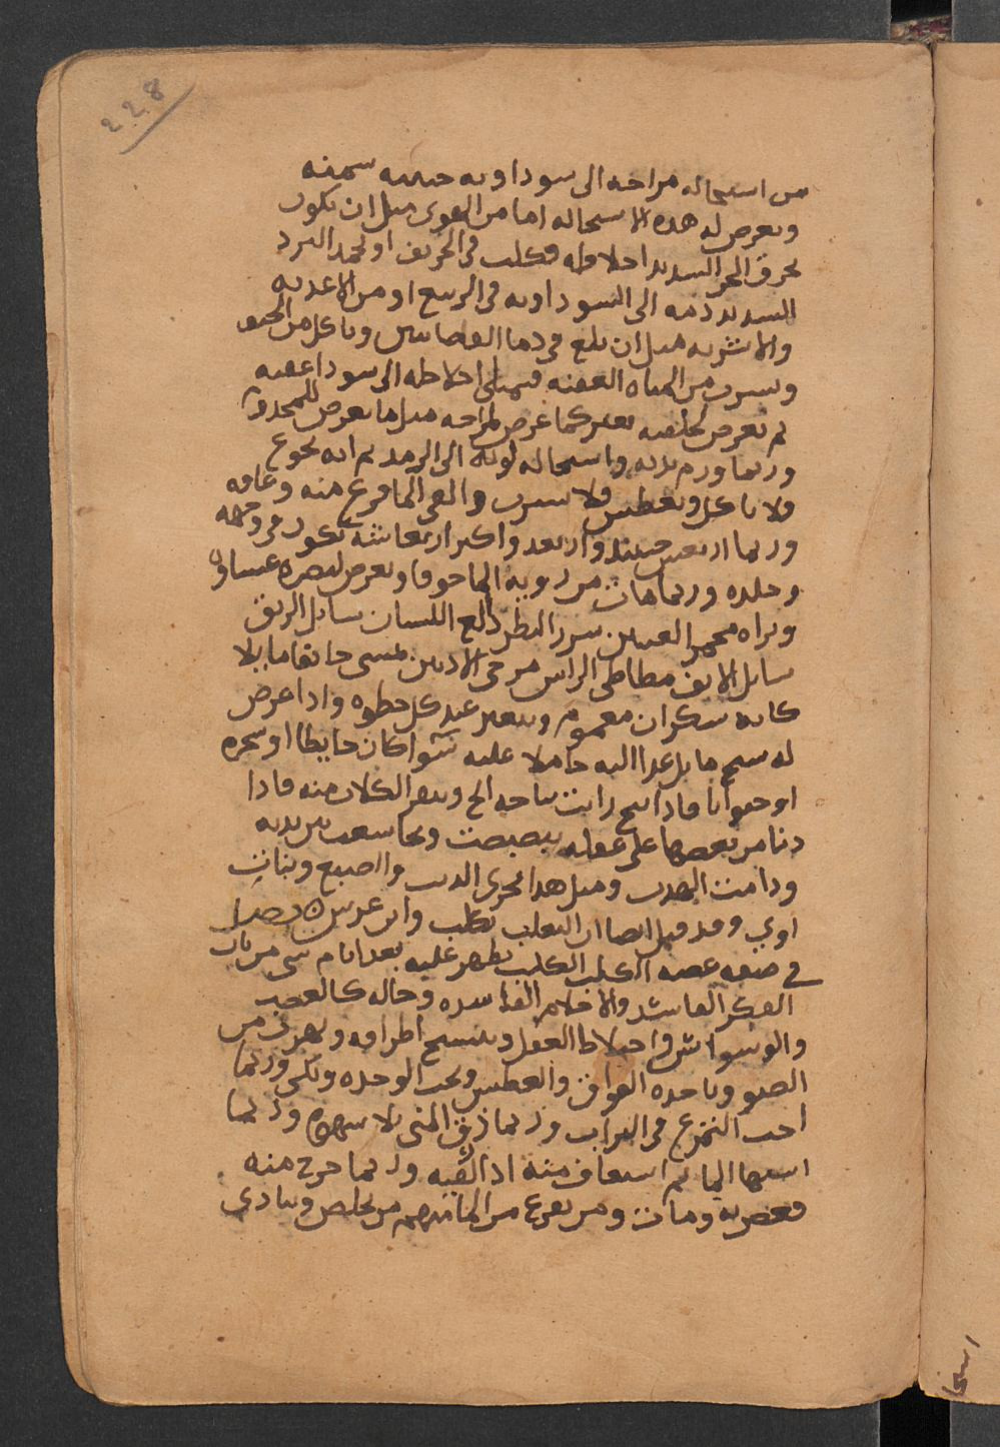 228
من استحاله مزاجه الى سوداويه خبيثه سميه
ويعرض له هذه الاستحاله اما من الهوى مثل ان يكون
يحرق الحر الشديد اخلاطه فيكلب في الخريف او يجمد البرد
الشديد دمه الى السوداويه في الربيع او من الاغذيه
والاشربه مثل ان يلغ في دما القصابين وياكل من الجيف
ويشرب من المياه العفنه فيميل اخلاطه الى سودا عفنه
ثم يعرض لخلقته تغير كما عرض لمزاجه مثل ما يعرض للمجذوم
وربما ورم بدنه واستحاله لونه الى الرمد ثم انه يجوع
فلا ياكل ويعطش فلا يشرب واذا لقي الما فزع منه وعافه
وربما ارتعش حينئذ وارتعد واكثر ارتعاشه يكون في وجهه
وجلده وربما مات من رويه الما خوفا ويعرض لبصره غشاوه
ويراه محمر العينين شزر النظر دالع اللسان سايل الريق
سايل الانف مطاطى الراس مرخى الاذنين يمشى خايفا مايلا
كانه سكران مغموم ويتعثر عند كل خطوه واذا عرض
له شبح ما بل عدا اليه حاملا عليه سوا كان حايطا او شجره
او حيوانا فاذا نبح رايت نباحه ابح وينفر الكلاب منه فاذا
دنا من بعضها على غفله بصبصت وتخاسعت بين يديه
ودامت الهرب ومثل هذا يجرى الذيب والضبع وبنات
اوي وقد قيل ايضا ان الثعلب يكلب وابن عرس فصل
في صفه عضه الكلب الكلب يظهر عليه بعد ايام شى من باب
الفكر الفاسد والاحلام الفاسده وحاله كالغضب
والوسواس واختلاط العقل ويتشنج اطرافه ويهرب من
الضو وياخذه الفواق والعطش ويحب الوحده ويبكى وربما
احب التمرغ في التراب وربما ذرق المنى بلا شهوه وربما
اشتها الما ثم استعاف منه اذا لقيه وربما جرع منه
فغص به ومات ومن يفزع من الما منهم من يخلص وينادى